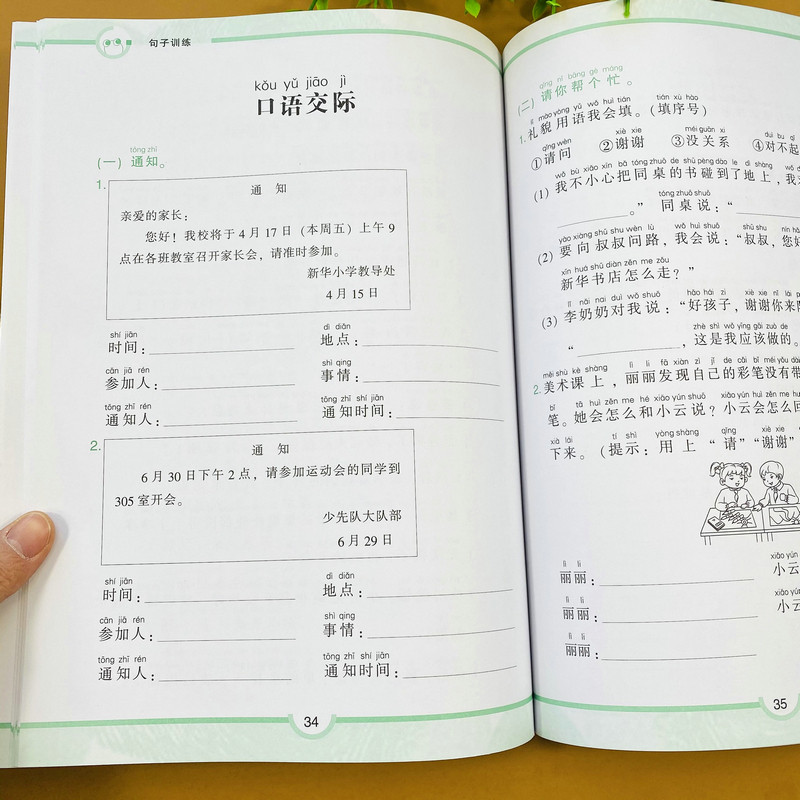 句子训练
kǒu yǔ jiāo jì
口语交际
tōng zhī
(一) 通知。
1.
通 知
亲爱的家长：
您好！我校将于4月17日（本周五）上午9
点在各班教室召开家长会，请准时参加。
新华小学教导处
4月15日
shí jiān
时间：
dì diǎn
地点：
cān jiā rén
参加人：
shì qing
事情：
tōng zhī rén
通知人：
tōng zhī shí jiān
通知时间：
2.
通 知
6月30日下午2点，请参加运动会的同学到
305室开会。
少先队大队部
6月29日
shí jiān
时间：
dì diǎn
地点：
cān jiā rén
参加人：
shì qing
事情：
tōng zhī rén
通知人：
tōng zhī shí jiān
通知时间：
34
qǐng nǐ bāng gè máng
(二) 请你帮个忙。
lǐ mào yòng yǔ wǒ huì tián tián xù hào
1. 礼貌用语我会填。(填序号)
qǐng wèn xiè xie méi guān xi duì bu qǐ
①请问 ②谢谢 ③没关系 ④对不起
wǒ bù xiǎo xīn bǎ tóng zhuō de shū pèng dào le dì shàng wǒ
(1) 我不小心把同桌的书碰到了地上，我
tóng zhuō shuō
。” 同桌说：“
yào xiàng shū shu wèn lù wǒ huì shuō shū shu nín hǎo
(2) 要向叔叔问路，我会说：“叔叔，您好
xīn huá shū diàn zěn me zǒu
新华书店怎么走？”
lǐ nǎi nai duì wǒ shuō hǎo hái zi xiè xie nǐ lái
(3) 李奶奶对我说：“好孩子，谢谢你来陪
zhè shì wǒ yīng gāi zuò de
“ ，这是我应该做的。
měi shù kè shàng lì li fā xiàn zì jǐ de cǎi bǐ méi yǒu dài
2. 美术课上，丽丽发现自己的彩笔没有带
bǐ tā huì zěn me hé xiǎo yún shuō xiǎo yún huì zěn me
笔。她会怎么和小云说？小云会怎么回
xià lái tí shì yòng shàng qǐng xiè xie
下来。(提示：用上“请”“谢谢”
lì li
丽丽：
xiǎo yún
小云
lì li
丽丽：
xiǎo yún
小云
lì li
丽丽：
35